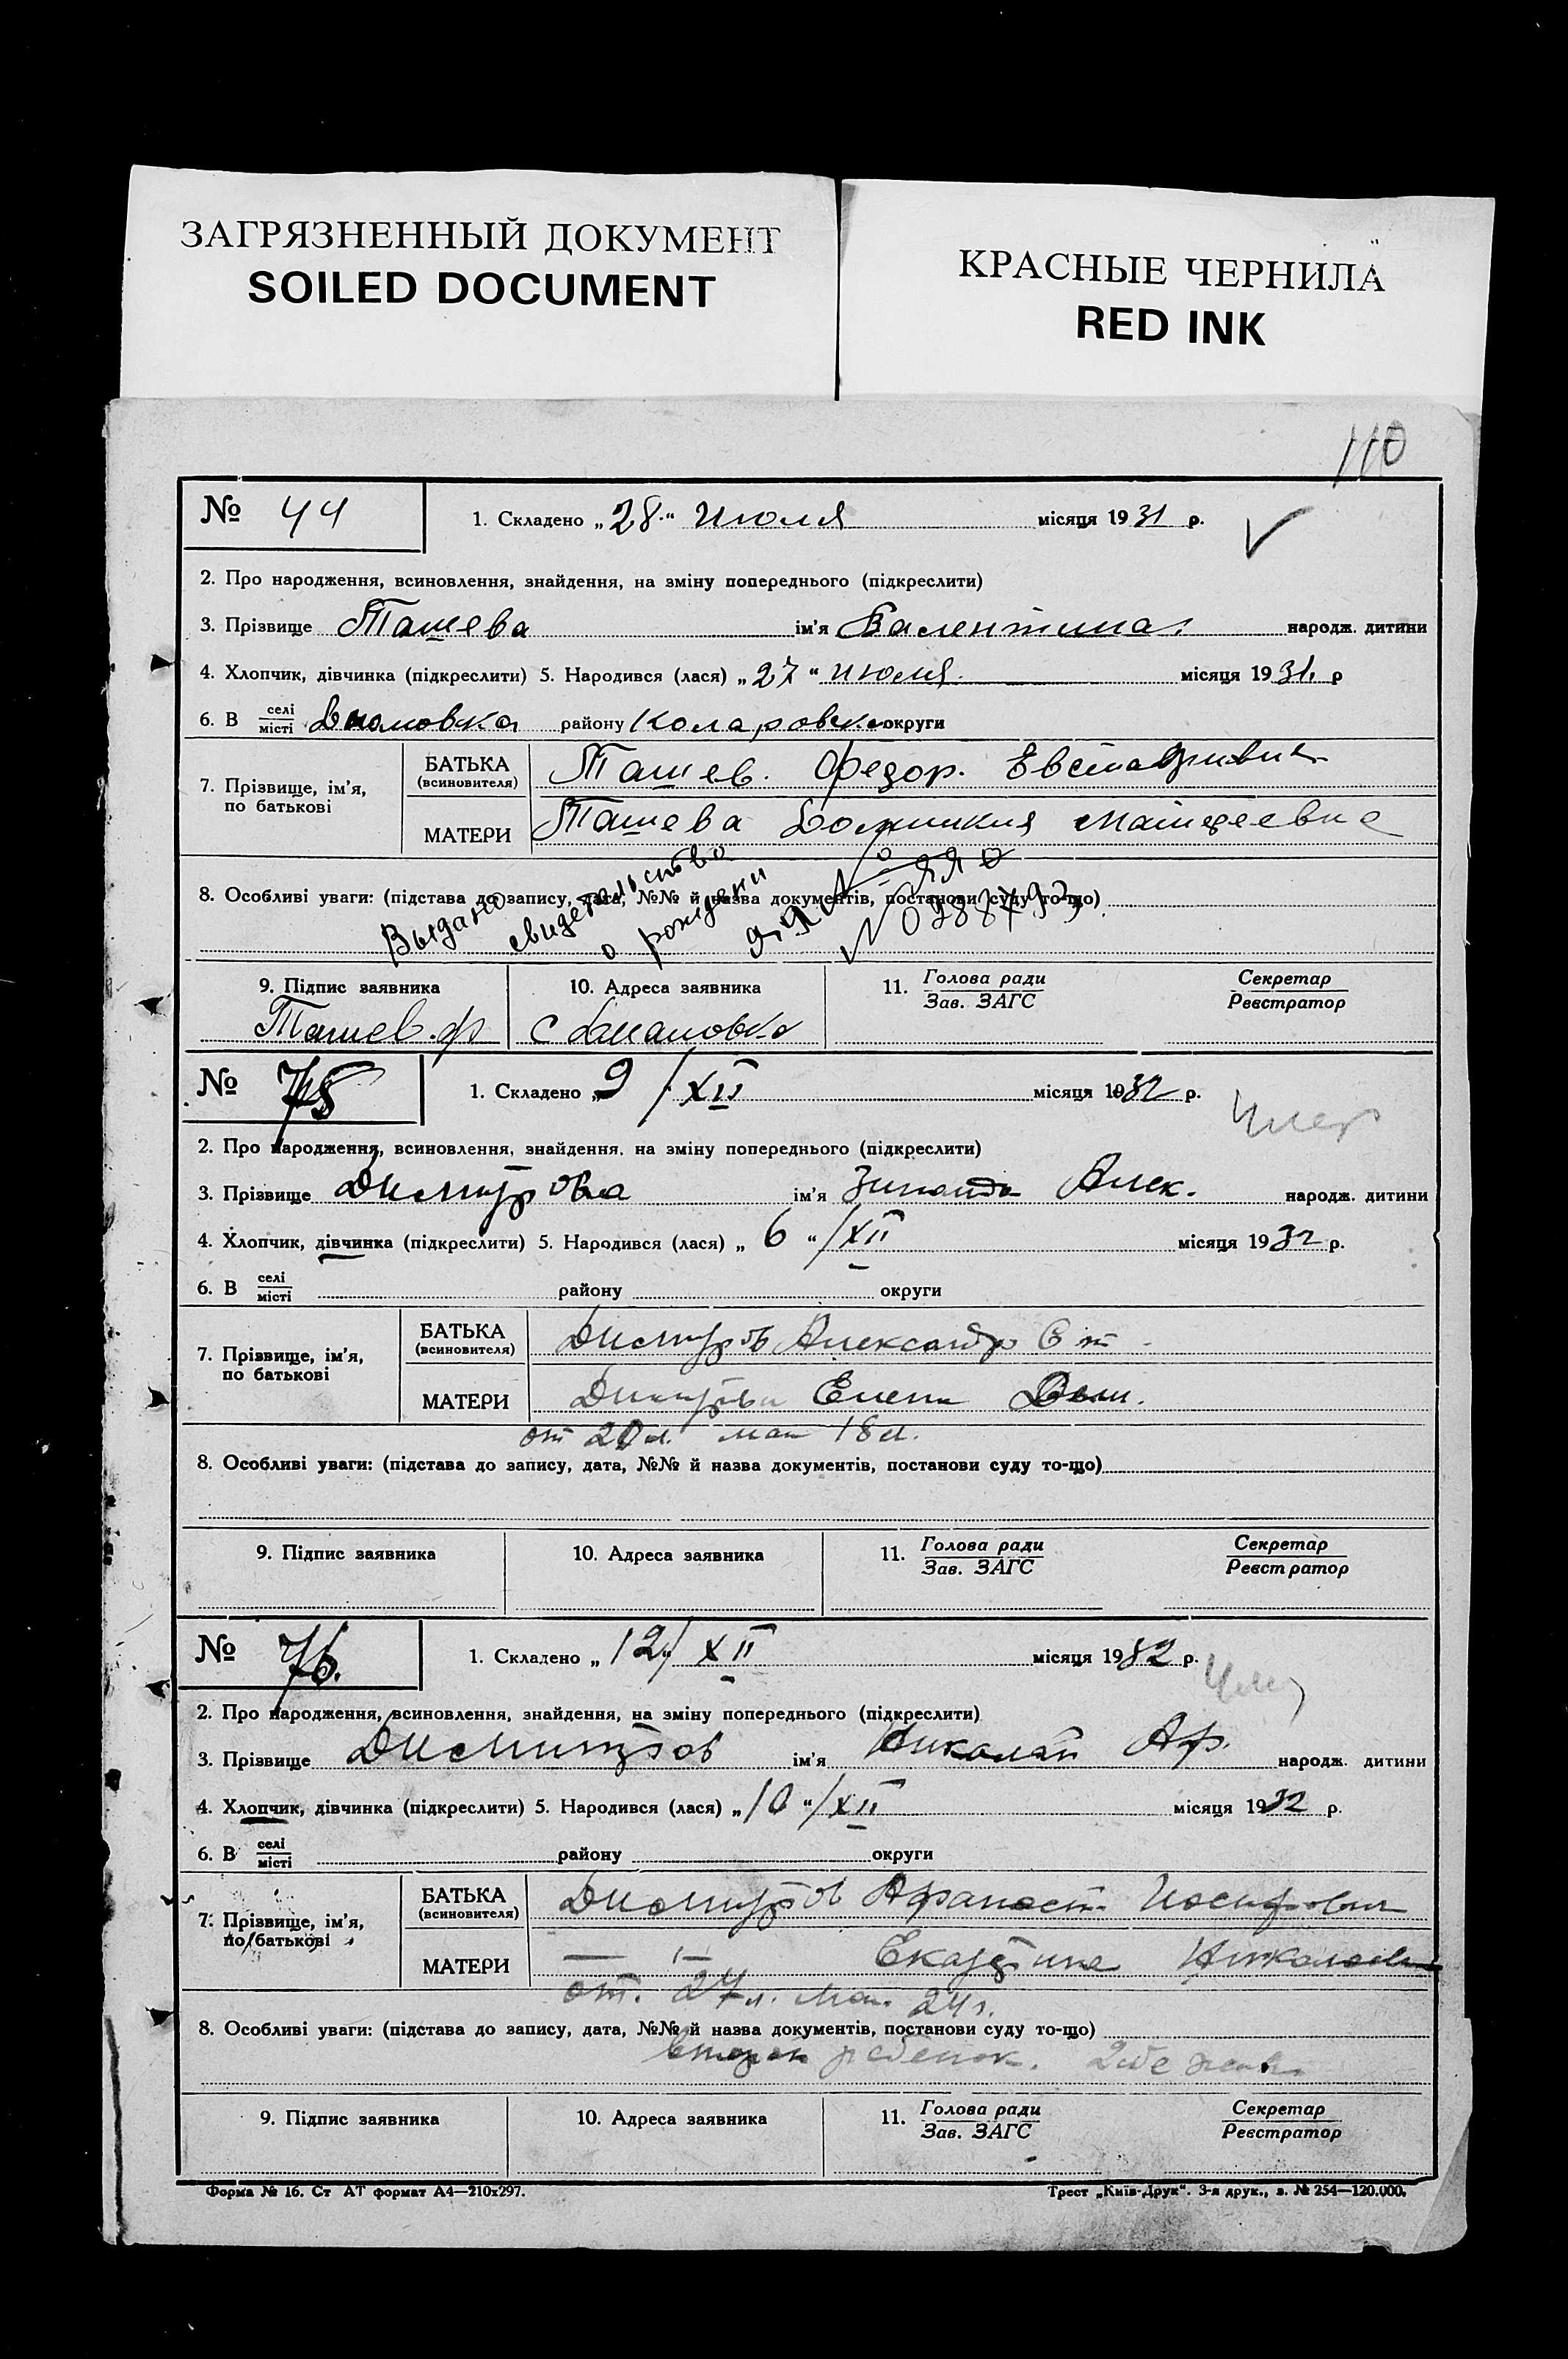 ЗАГРЯЗНЕННЫЙ ДОКУМЕНТ
SOILED DOCUMENT
КРАСНЫЕ ЧЕРНИЛА
RED INK
110
№ 44 1. Складено „28“ Июля місяця 1931 р.
2. Про народження, всиновлення, знайдення, на зміну попереднього (підкреслити)
3. Прізвище Ташева ім'я Валентина народж. дитини
4. Хлопчик, дівчинка (підкреслити) 5. Народився (лася) „27“ июля місяця 1931. р
6. В селі/місті району Коларовск округи
7. Прізвище, ім'я, по батькові
БАТЬКА (всиновителя) Ташев. Федор.
МАТЕРИ Ташева
8. Особливі уваги: (підстава до запису, дата, №№ й назва документів, постанови суду то-що)
Выдано свидетельство о рождении
9. Підпис заявника 10. Адреса заявника 11. Голова ради/Зав. ЗАГС Секретар/Реєстратор
Ташев.ф с
№ 75 1. Складено „9/XII місяця 1932 р.
2. Про народження, всиновлення, знайдення, на зміну попереднього (підкреслити)
3. Прізвище Димитрова ім'я Зинаида Алек. народж. дитини
4. Хлопчик, дівчинка (підкреслити) 5. Народився (лася) „6“/XII місяця 1932 р.
6. В селі/місті району округи
7. Прізвище, ім'я, по батькові
БАТЬКА (всиновителя) Димитров Александр Ст.
МАТЕРИ Димитрова Елена
мат 18 л.
8. Особливі уваги: (підстава до запису, дата, №№ й назва документів, постанови суду то-що)
9. Підпис заявника 10. Адреса заявника 11. Голова ради/Зав. ЗАГС Секретар/Реєстратор
№ 76. 1. Складено „12“/XII місяця 1932 р.
2. Про народження, всиновлення, знайдення, на зміну попереднього (підкреслити)
3. Прізвище Димитров ім'я Николай Аф. народж. дитини
4. Хлопчик, дівчинка (підкреслити) 5. Народився (лася) „10“/XII місяця 1932 р.
6. В селі/місті району округи
7. Прізвище, ім'я, по батькові
БАТЬКА (всиновителя) Димитров Афанаст. Иосифович
МАТЕРИ — „ — Екатерина Николаевна
от. 27 л. мат. 24 л.
8. Особливі уваги: (підстава до запису, дата, №№ й назва документів, постанови суду то-що)
второй ребенок.
9. Підпис заявника 10. Адреса заявника 11. Голова ради/Зав. ЗАГС Секретар/Реєстратор
Форма № 16. Ст АТ формат А4—210х297. Трест „Київ-Друк“. 3-я друк., з. № 254—120.000.